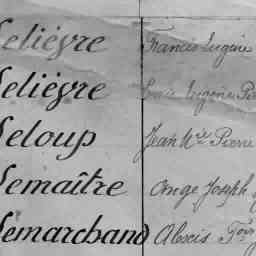 Lelièvre Francis Eugène
Lelièvre Louis Eugène Pie
Leloup Jean M.ie Pierre
Lemaître Ange Joseph
Lemarchand Alexis